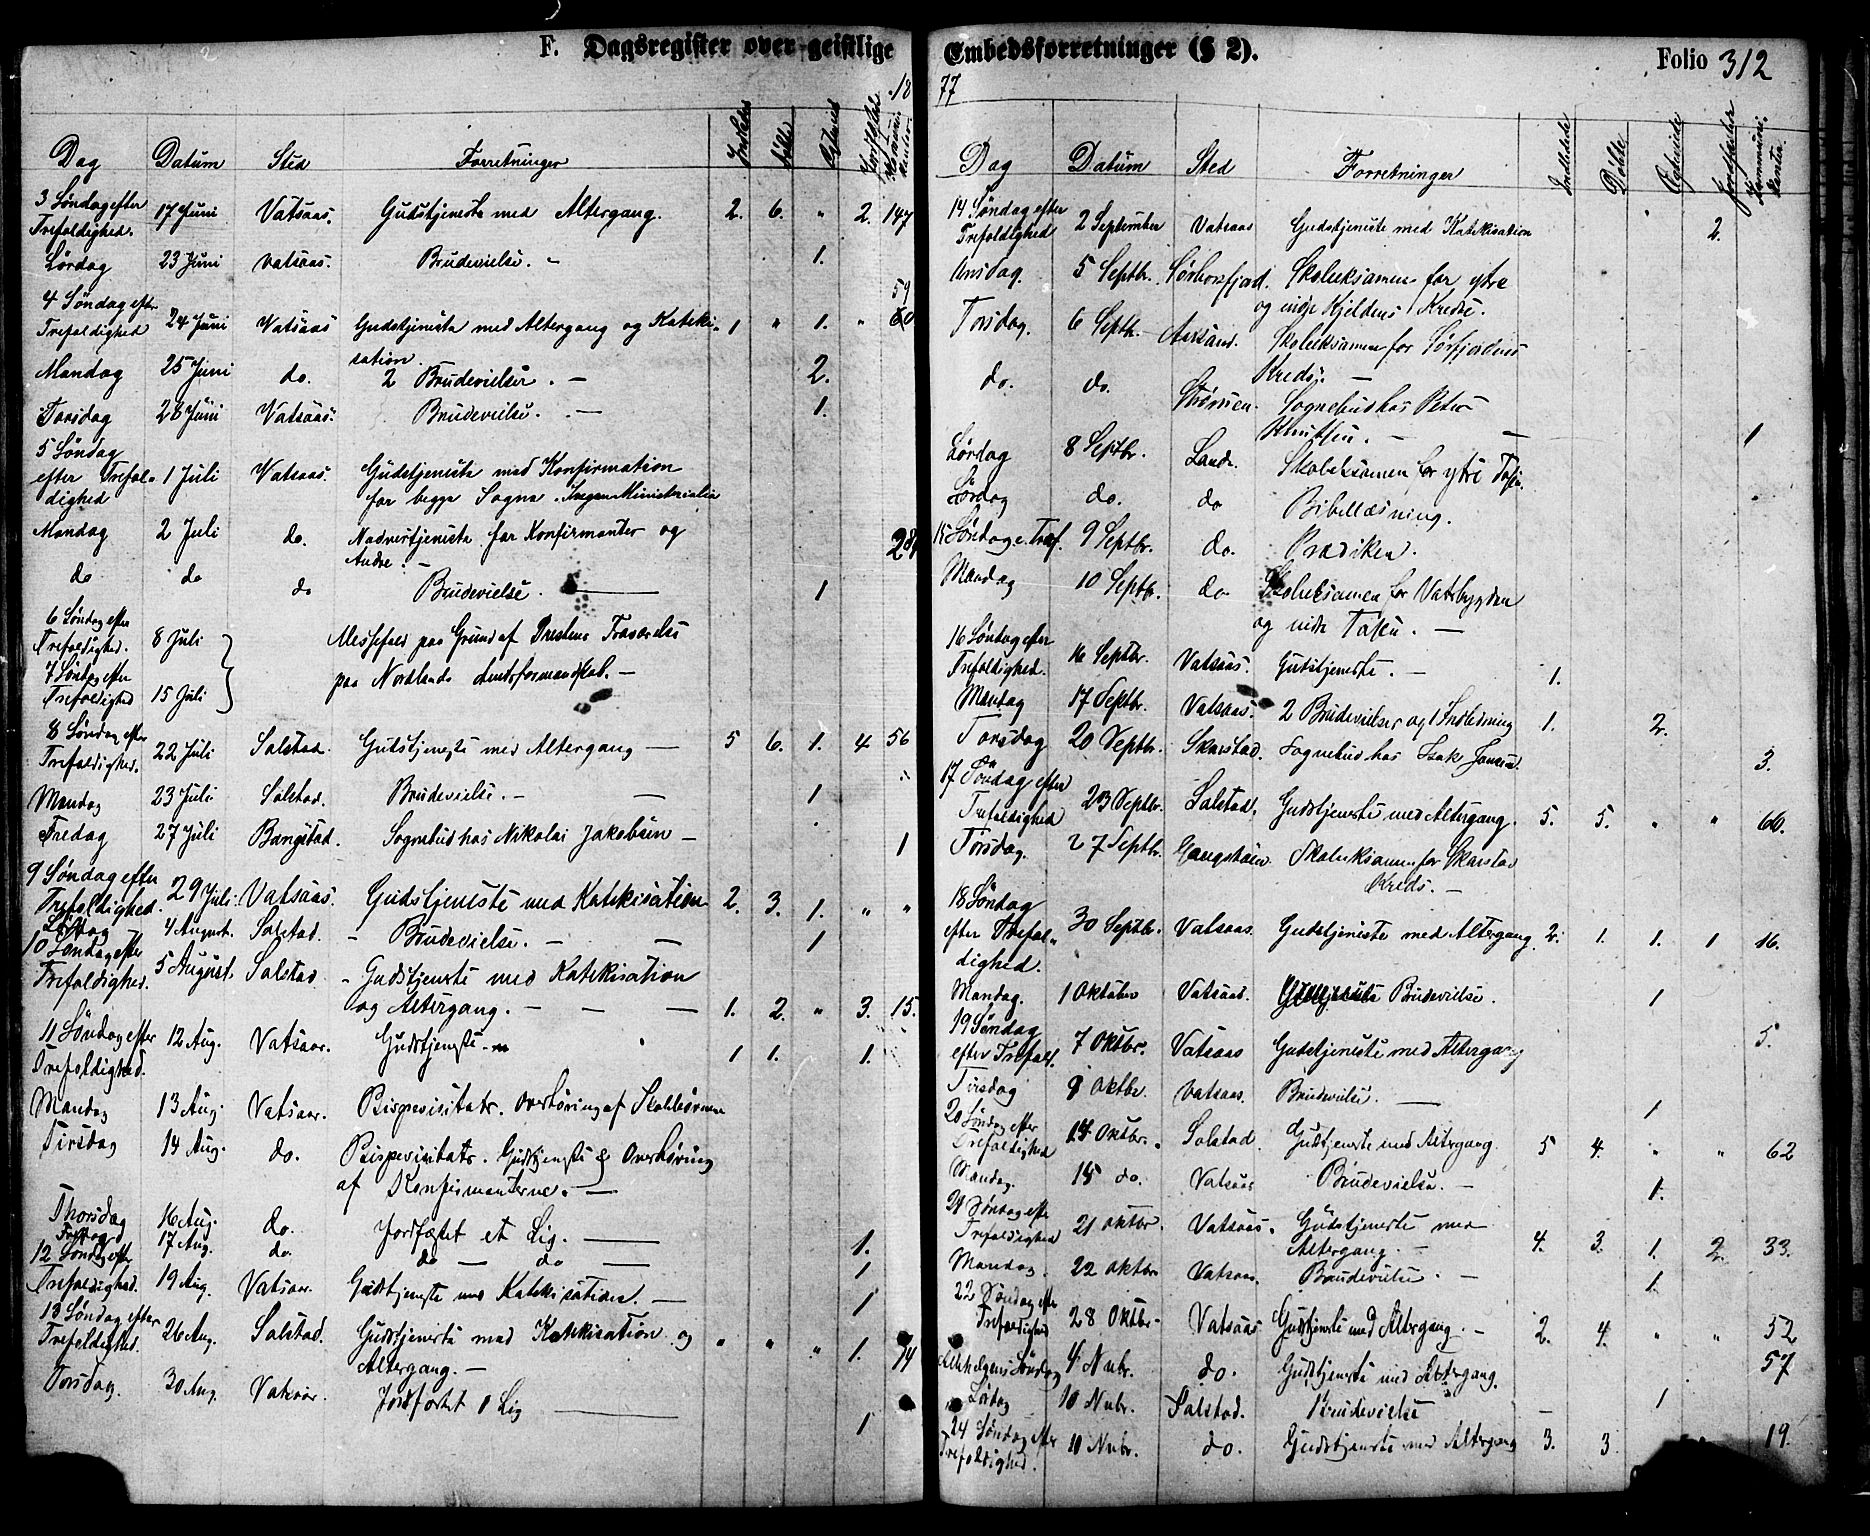 F. Dagsregister over geistlige
18
Dag Datum Sted Forretninger Indledede Døbte Egteviede Jordfæstede Kommunikanter
3 Søndag efter
Trefoldighed. 17 Juni Vatsaas. Gudstjeneste med Altergang. 2. 6. " 2. 147
Lørdag 23 Juni Vatsaas. Brudevielse. – 1.
59
4 Søndag efter
Trefoldighed 24 Juni Vatsaas Gudstjeneste med Altergang og Kateki- 1 " 1. " 60
sation.
Mandag 25 Juni do. 2 Brudevielser. – 2.
Torsdag 28 Juni Vatsaas. Brudevielse. – 1.
5 Søndag
efter Trefol- 1 Juli Vatsaas. Gudstjeneste med Konfirmation
dighed for begge Sogne. Ingen Ministerialia
Mandag 2 Juli do. Nadvertjeneste for Konfirmanter og
Andre. –
do do do Brudevielse. — 1
6 Søndag efter
Trefoldighed. 8 Juli Messefald paa Grund af Prestens Fraværelse
7 Søndag efter
Trefoldighed 15 Juli paa Nordlands Amtsformandskab. –
8 Søndag efter
Trefoldighed. 22 Juli Salstad. Gudstjeneste med Altergang — 5 6. 1. 4 56
Mandag 23 Juli Salstad. Brudevielse. – — 1
Fredag 27 Juli Bangstad. Sognebud hos Nikolai Jakobsen – 1
9 Søndag efter
Trefoldighed. 29 Juli. Vatsaas. Gudstjeneste med Katekisation 2. 3. 1. " "
Lørdag 4 August. Salstad. – Brudevielse. – — 1
10 Søndag efter
Trefoldighed. 5 August. Salstad – Gudstjeneste med Katekisation
og Altergang. – — — 1. 2. " 3. 15.
11 Søndag efter
Trefoldighed. 12 Aug. Vatsaas. Gudstjeneste. 1 1. 1.
Mandag 13 Aug. Vatsaas. Bispevisitats. Overhøring af Skolebørnene
Tirsdag 14 Aug. do. Bispevisitats. Gudstjeneste & Overhøring
af Konfirmanterne. —
Thorsdag 16 Aug. do. Jordfæstet et Lig. — 1.
Fredag 17 Aug. do. do — do — 1
12 Søndag efter
Trefoldighed. 19 Aug. Vatsaas. Gudstjeneste med Katekisation. — 1
13 Søndag efter
Trefoldighed. 26 Aug. Salstad. Gudstjeneste med Katekisation og " " " 1. 74
Altergang. –
Torsdag. 30 Aug. Vatsaas. Jordfæstet 1 Lig — 1
Embedsforretninger (§ 2). Folio 312
77
Dag Datum Sted Forretninger Indledede Døbte Egteviede Jordfæstede Kommunikanter.
14 Søndag efter
Trefoldighed 2 September Vatsaas Gudstjeneste med Katekisation 2.
Onsdag. 5 Septbr. Sørhorsfjord. Skoleeksamen for ytre
og indre Kjeldens Kredse.
Torsdag. 6 Septb. Aarsand. Skoleeksamen for Sørfjordens
Kreds. –
do. do. Strømmen. Sognebud hos Peter
Knutsen. – — 1
Lørdag 8 Septbr. Lande. Skoleeksamen for ytre Tosen.
Lørdag do. do Bibellæsning.
15 Søndag e. Tref. 9 Septbr. do. Prædiken.
Mandag 10 Septbr. do. Skoleeksamen for Vatsbygden
og indre Tosen. –
16 Søndag efter
Trefoldighed. 16 Septbr. Vatsaas. Gudstjeneste. – 1.
Mandag 17 Septbr. Vatsaas. 2 Brudevielser og 1 Indledning 1. 2.
Torsdag 20 Septbr. Skarstad. Sognebud hos Isak Jonsen. 3.
17 Søndag efter
Trefoldighed 23 Septbr. Salstad. Gudstjeneste med Altergang. 5. 5. " " 60.
Torsdag. 27 Septbr. Skoleeksamen for Skarstad
Kreds. –
18 Søndag
efter Trefol- 30 Septbr. Vatsaas. Gudstjeneste med Altergang 2. 1. 1. 1 16.
dighed.
Mandag. 1 Oktober Vatsaas. Brudevielse. 1
19 Søndag
efter Trefold. 7 Oktbr. Vatsaas Gudstjeneste med Altergang 5.
Tirsdag 9 Oktbr. Vatsaas. Brudevielse. — 1.
20 Søndag efter
Trefoldighed 14 Oktbr. Salstad. Gudstjeneste med Altergang. 5 4. " " 62
Mandag. 15 do. Vatsaas Brudevielse. – 1.
21 Søndag efter
Trefoldighed 21 Oktbr. Vatsaas. Gudstjeneste med
Altergang. – 4. 3. 1. 2. 33.
Mandag. 22 Oktbr Vatsaas. Brudevielse. – 1.
22 Søndag efter
Trefoldighed 28 Oktbr. Vatsaas Gudstjeneste med Altergang. – 2. 4. " " 52
Allehelgens Søndag 4 Nvbr. do. Gudstjeneste med Altergang. 57
Lørdag 10 Nvbr. Salstad. Brudevielse – 1
24 Søndag efter
Trefoldighed. 11 Nvbr. do. Gudstjeneste med Altergang 3. 3 19.